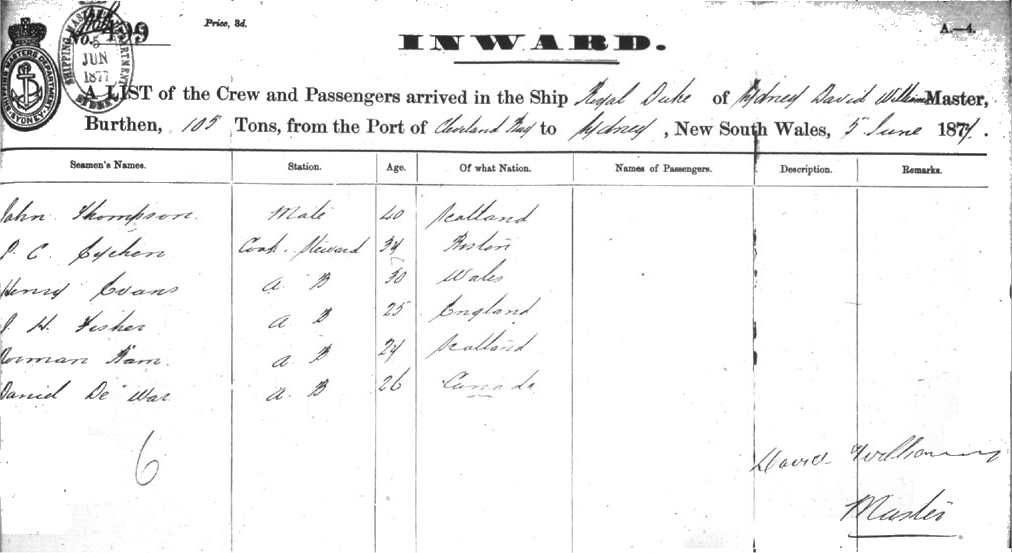 No. 99
Price, 3d.
A.—4.
SHIPPING MASTERS DEPARTMENT
5
JUN
1877
SYDNEY
INWARD.
A LIST of the Crew and Passengers arrived in the Ship Royal Duke of Sydney David Williams Master,
Burthen, 105 Tons, from the Port of Cleveland Bay to Sydney, New South Wales, 5 June 1877.
Seamen's Names. Station. Age. Of what Nation. Names of Passengers. Description. Remarks.
John Thompson Mate 40 Scotland
C. Cook Steward 34 Boston
Henry Evans A B 30 Wales
H. Fisher A B 25 England
Norman A B 24 Scotland
Daniel De War A B 26 Canada
6
David Williams
Master